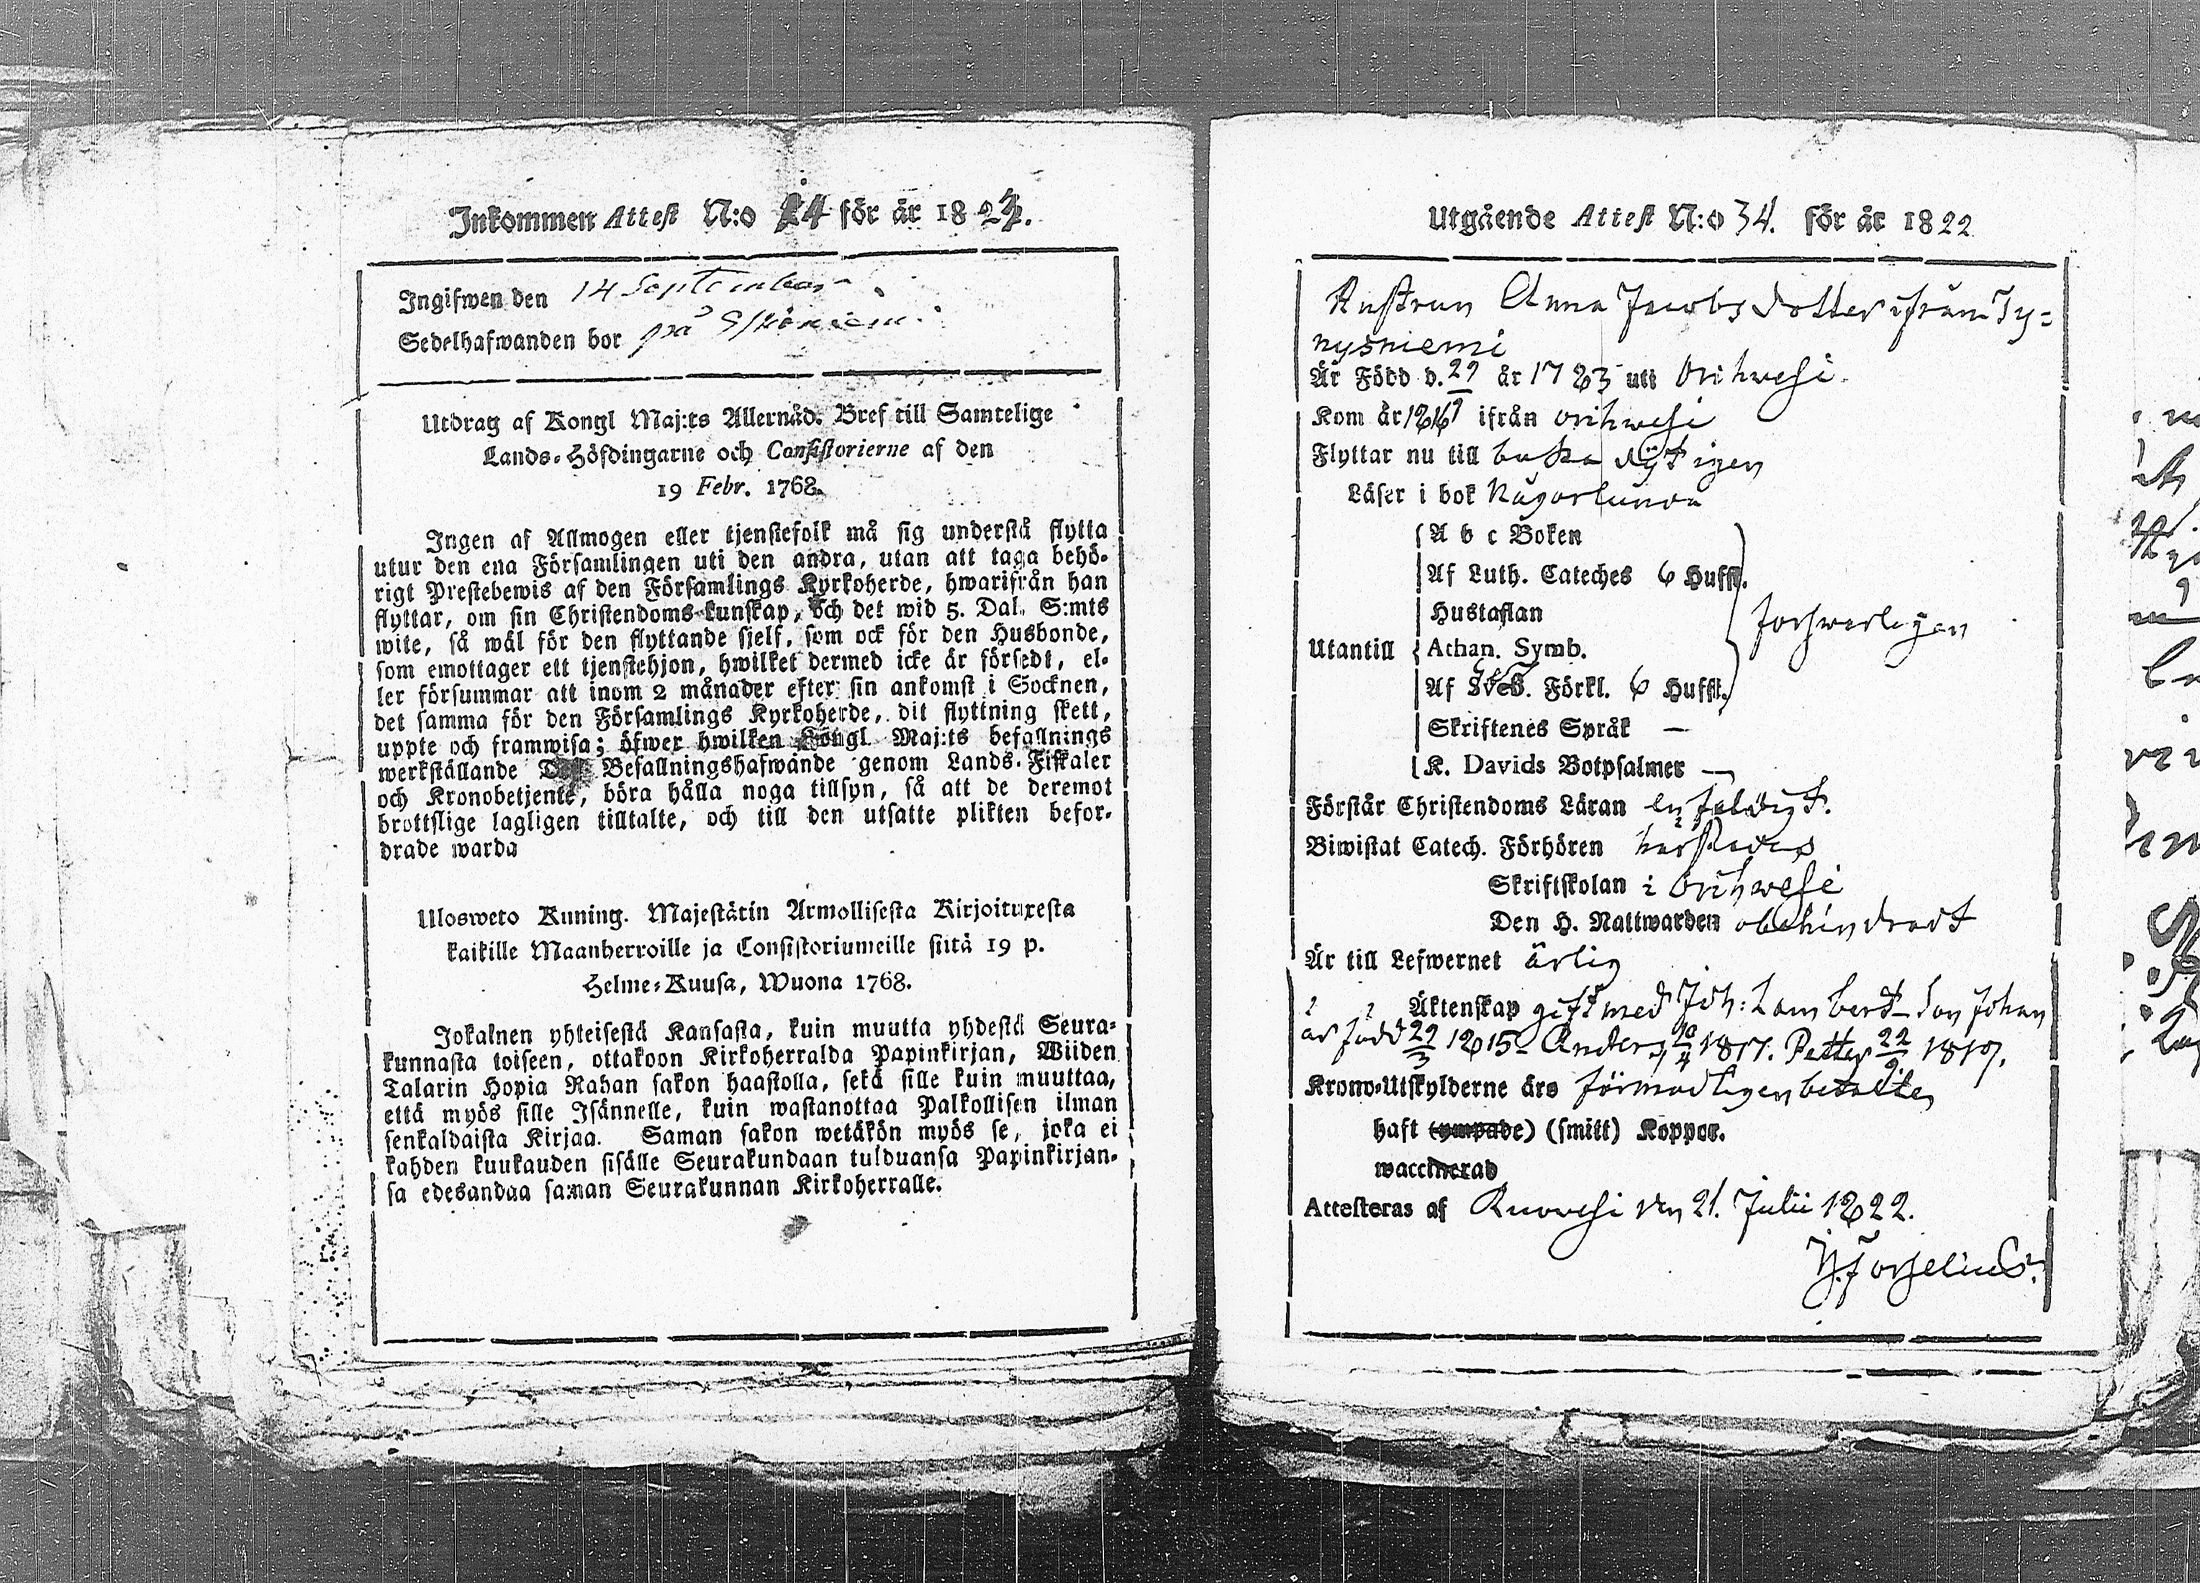 Inkommen Attest N:o 24 för år 1822.
Ingifwen den 14 September
Sedelhafwanden bor på
Utdrag af Kongl Maj:ts Allernåd. Bref till Samtelige
Lands-Höfdingarne och Consistorierne af den
19 Febr. 1768.
Ingen af Allmogen eller tjenstefolk må sig understå flytta
utur den ena Församlingen uti den andra, utan att taga behö-
rigt Prestebewis af den Församlings Kyrkoherde, hwarifrån han
flyttar, om sin Christendoms-kunskap, och det wid 5. Dal. S:mts
wite, så wäl för den flyttande sjelf, som ock för den Husbonde,
som emottager ett tjenstehjon, hwilket dermed icke är försedt, el-
ler försummar att inom 2 månader efter sin ankomst i Socknen,
det samma för den Församlings Kyrkoherde, dit flyttning skett,
uppte och framwisa; öfwer hwilken Kongl Maj:ts befallnings
werkställande Befallningshafwande genom Lands-Fiskaler
och Kronobetjente, böra hålla noga tillsyn, så att de deremot
brottslige lagligen tilltalte, och till den utsatte plikten befor-
drade warda
Ulosweto Kuning. Majestätin Armollisesta Kirjoituxesta
kaikille Maanherroille ja Consistoriumeille siitä 19 p.
Helme-Kuusa, Wuona 1768.
Jokainen yhteisestä Kansasta, kuin muutta yhdestä Seura-
kunnasta toiseen, ottakoon Kirkoherralda Papinkirjan, Wiiden
Talarin Hopia Rahan sakon haastolla, sekä sille kuin muuttaa,
että myös sille Isännelle, kuin wastanottaa Palkollisen ilman
senkaldaista Kirjaa. Saman sakon wetäkön myös se, joka ei
kahden kuukauden sisälle Seurakundaan tulduansa Papinkirjan-
sa edesandaa saman Seurakunnan Kirkoherralle.
Utgående Attest N:o 34. för år 1822
Hustrun Anna Jacobs dotter ifrån Ty=
nysniemi
Är Född d. 29 år 1783 uti Orihwesi.
Kom år ifrån orihwesi
Flyttar nu till igen
Läser i bok Någorlunda
A b c Boken
Af Luth. Cateches 6 Hufst.
Hustaflan
Utantill Athan. Symb. Forswarligen
Af Sveb. Förkl. 6 Hufst.
Skriftenes Språk —
K. Davids Botpsalmer —
Förstår Christendoms Läran enfaldigt.
Biwistat Catech. Förhören härstädes
Skriftskolan i Orihwesi
Den H. Nattwarden obehindradt
Är till Lefwernet ärlig
Äktenskap gift med Joh: Lambert Son Johan
är född 29/3 1815 Anders 1817. Petter 22/9 1819.
Krono-Utskylderne äro förmodligen betalte
haft (ympade) (smitt) Koppor.
waccinerad
Attesteras af Ruowesi den 21. Julii 1822.